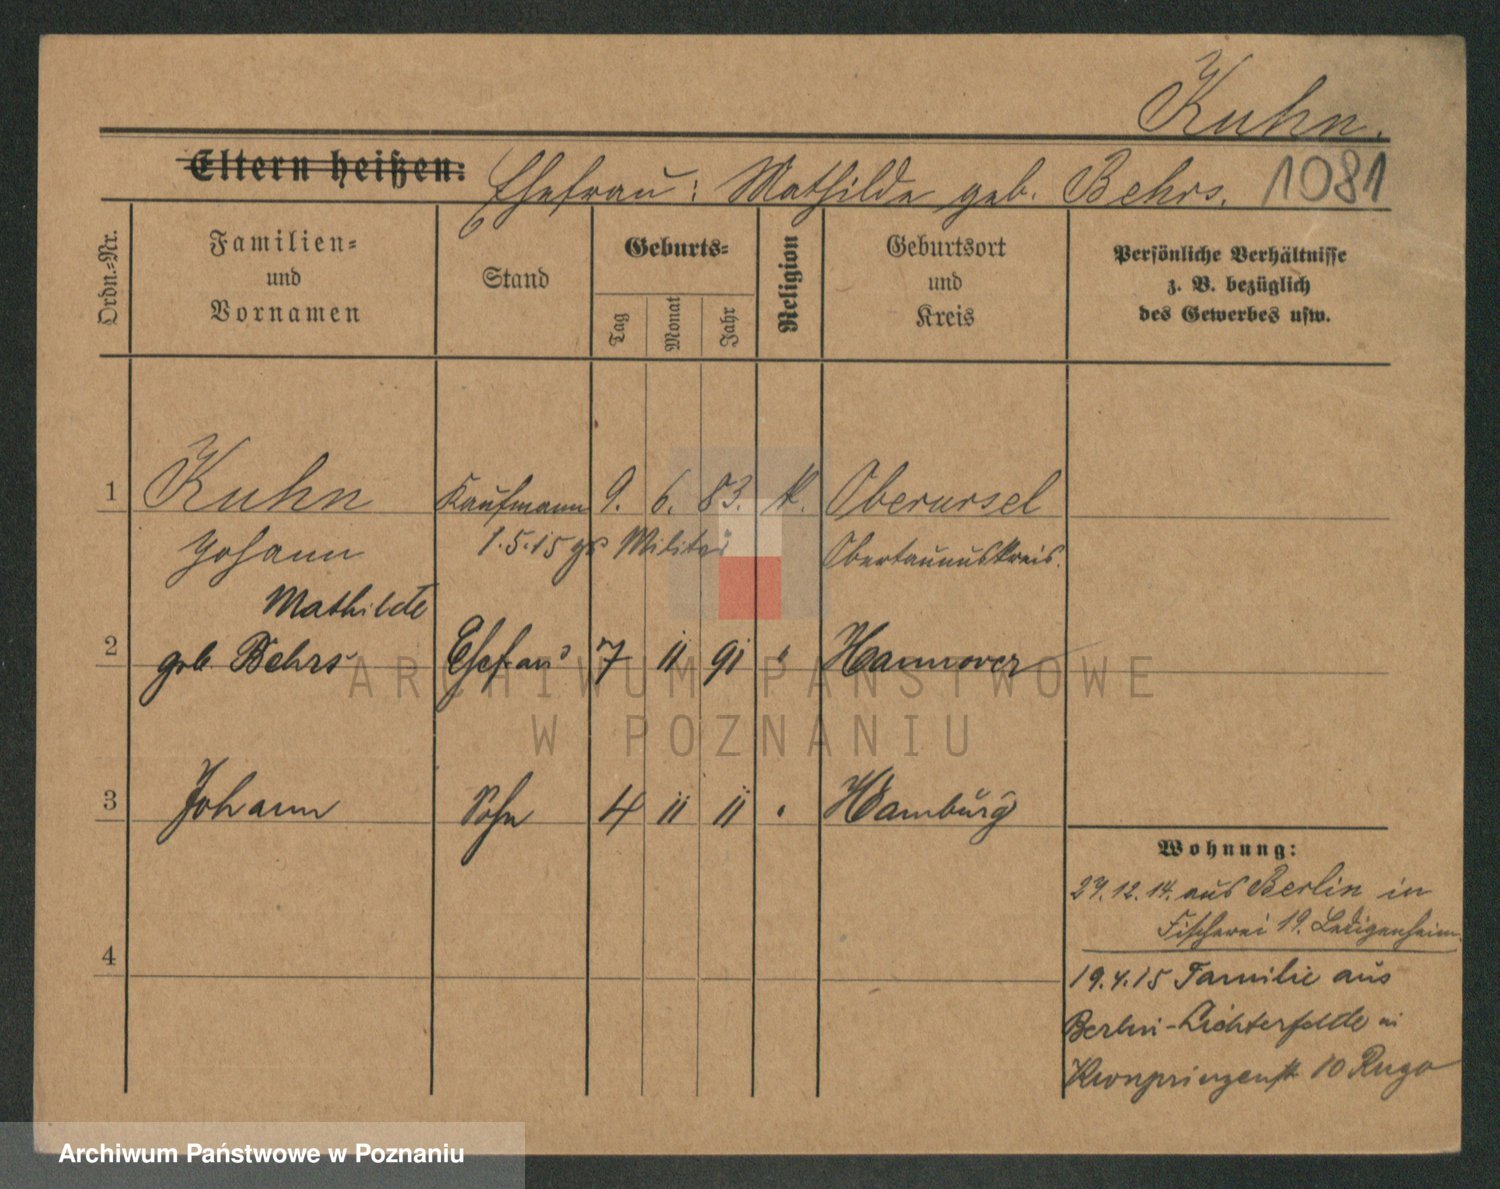 Kuhn.
Eltern heißen: Ehefrau: Mathilde geb. Behrs. 1081
Ordn.-Nr.
Familien-
und
Vornamen
Stand
Geburts-
Tag
Monat
Jahr
Religion
Geburtsort
und
Kreis
Persönliche Verhältnisse
z. B. bezüglich
des Gewerbes usw.
1 Kuhn Kaufmann 9. 6. 83. k. Oberursel
Johann 1.5.15 Militär Obertaunuskreis.
Mathilde
2 geb. Behrs Ehefrau 7 11 91 " Hannover
3 Johann Sohn 4 11 11 " Hamburg
4
Wohnung:
27.12.14. aus Berlin in
Fischerei 19. Ledigenheim.
19.4.15 Familie aus
Berlin-Lichterfelde in
Kronprinzenstr 10
ARCHIWUM PAŃSTWOWE
W POZNANIU
Archiwum Państwowe w Poznaniu